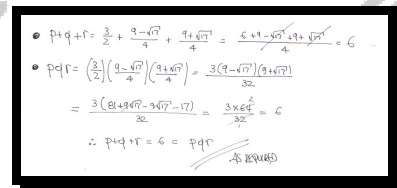 • p+q+r = 3/2 + (9-√17)/4 + (9+√17)/4 = (6+9-√17+9+√17)/4 = 6
• pqr = (3/2)((9-√17)/4)((9+√17)/4) = 3(9-√17)(9+√17)/32
= 3(81+9√17-9√17-17)/32 = 3×64²/32 = 6
∴ p+q+r = 6 = pqr
AS REQUIRED